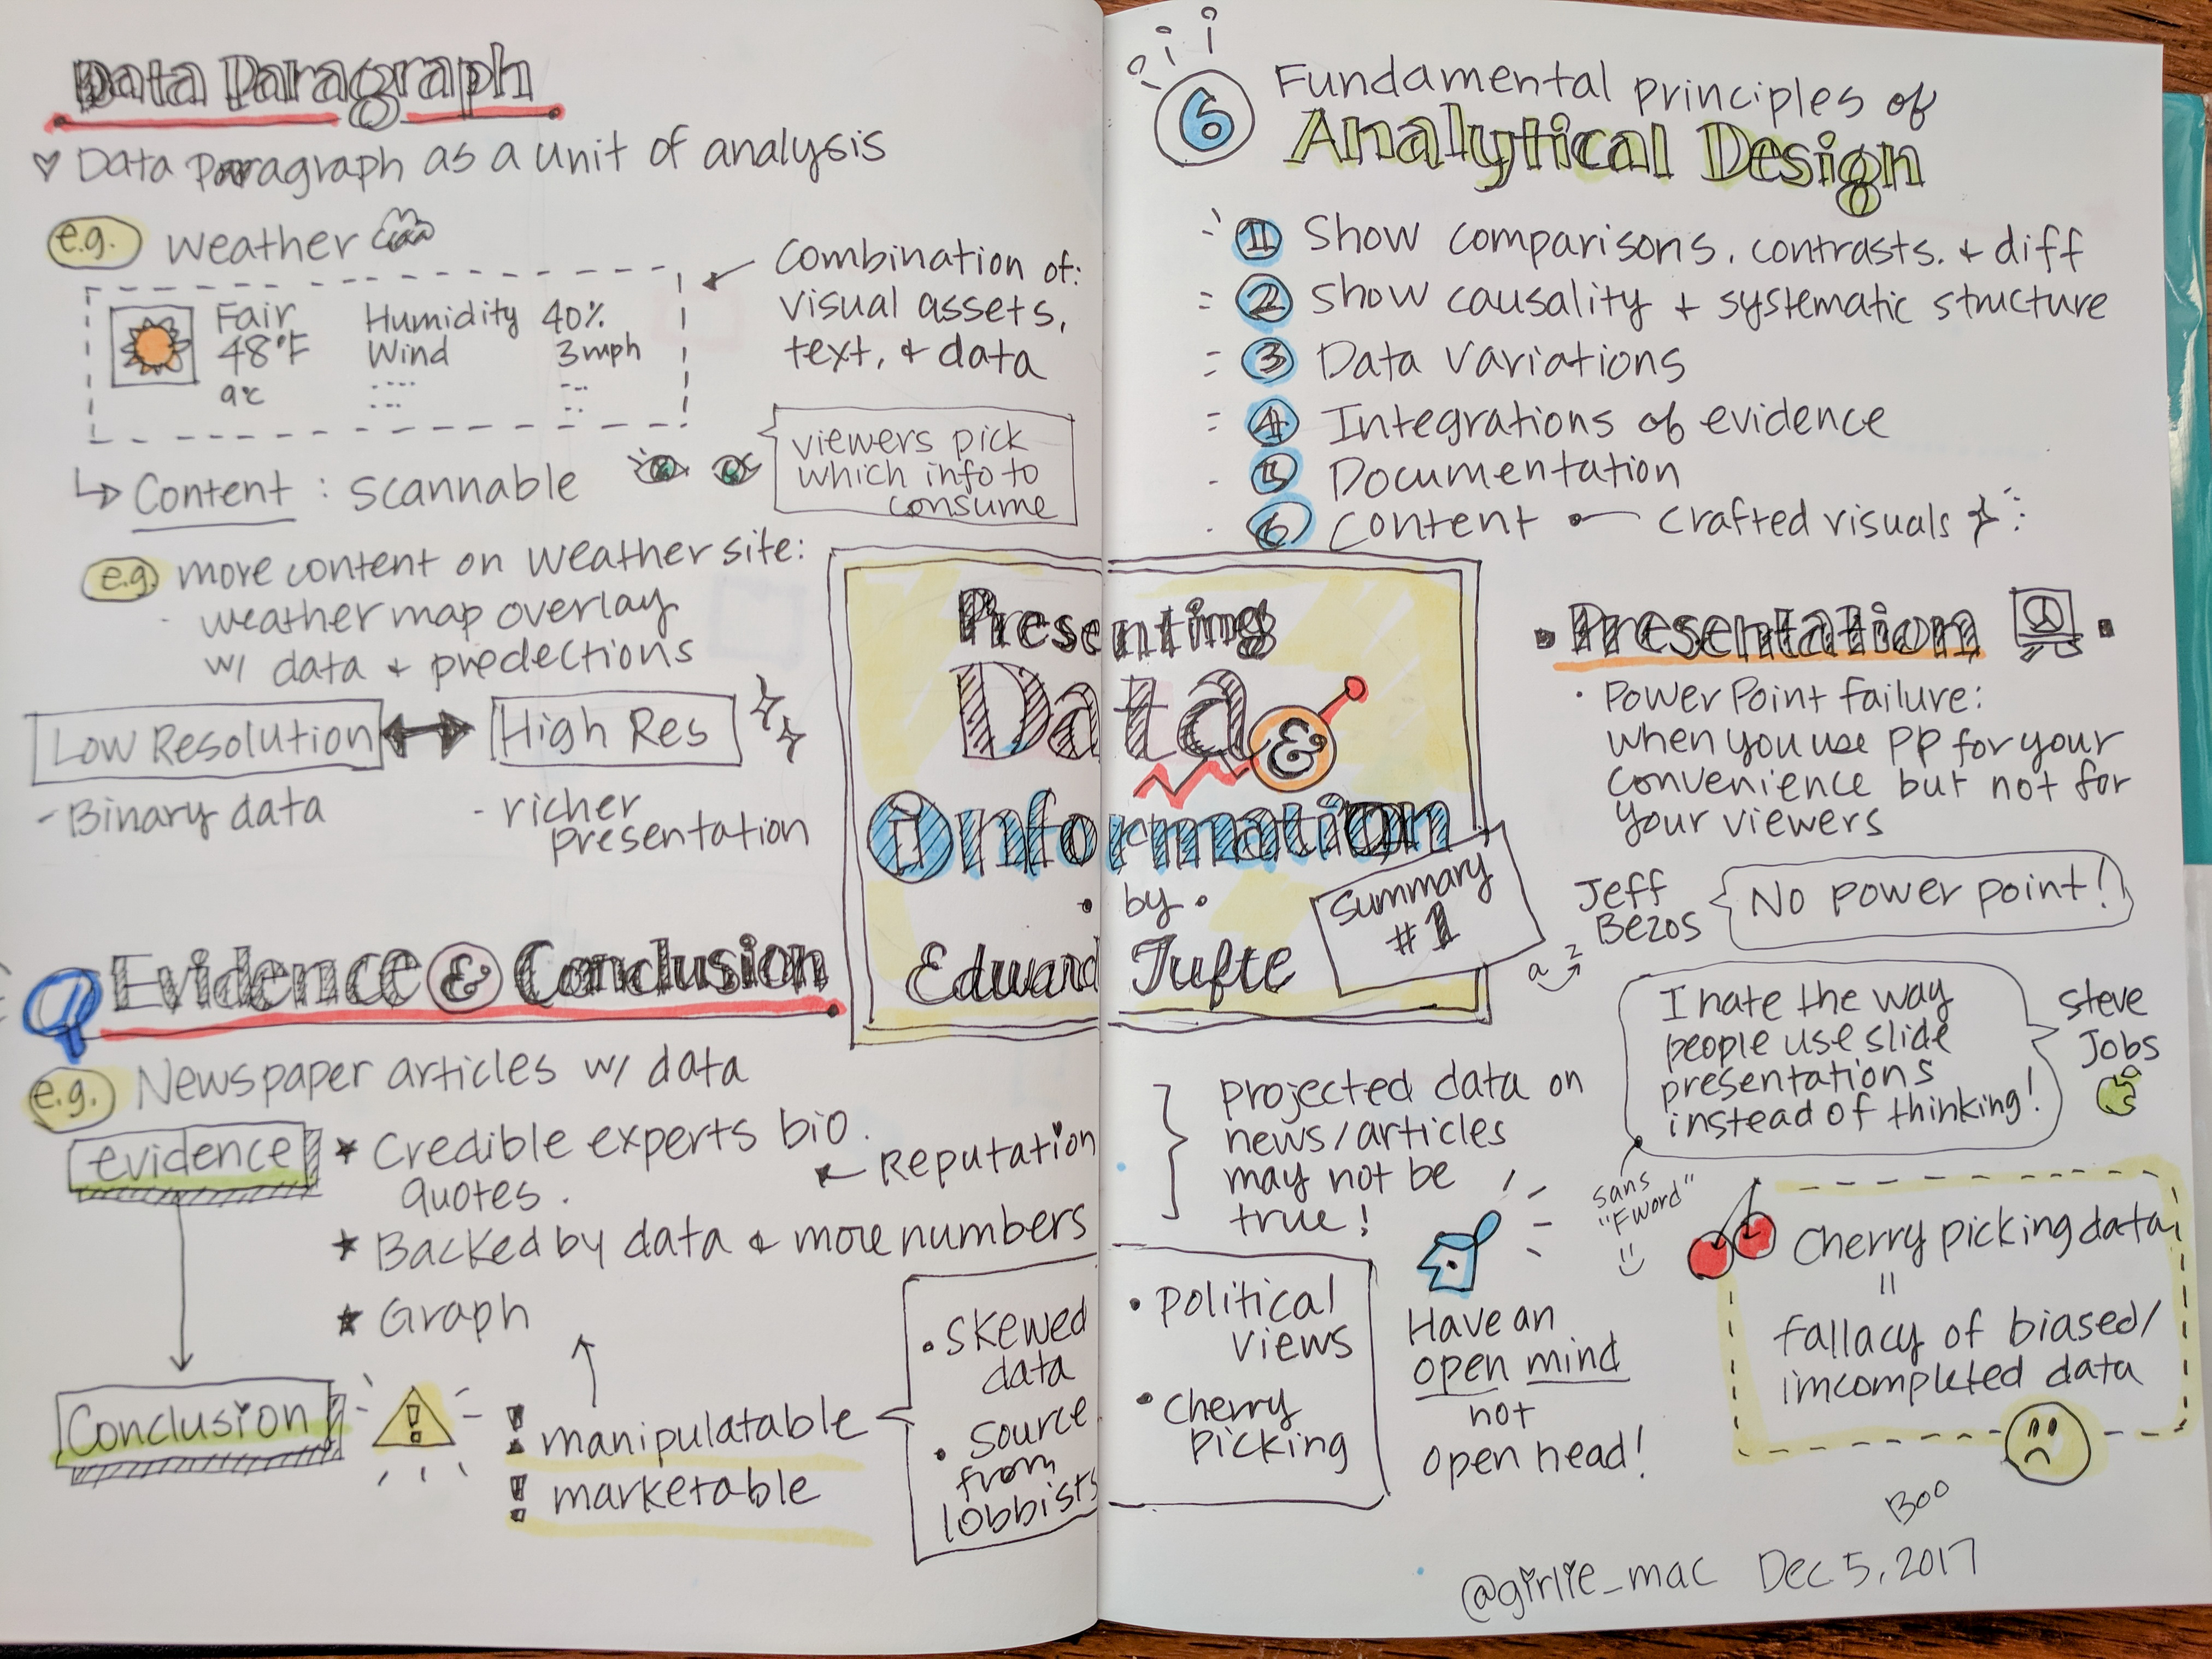 Data Paragraph
♡ Data Paragraph as a unit of analysis
e.g. Weather
Fair Humidity 40%
48°F Wind 3mph
9℃
Combination of:
visual assets,
text, & data
↳ Content : scannable
viewers pick
which info to
consume
e.g. more content on weather site:
- weather map overlay
w/ data & predections
Low Resolution ↔ High Res
- Binary data
- richer
presentation
Evidence & Conclusion
e.g. Newspaper articles w/ data
evidence
★ Credible experts bio.
quotes.
← Reputation
★ Backed by data & more numbers
★ Graph
Conclusion
! manipulatable
! marketable
• Skewed
data
• Source
from
lobbists
• political
views
• cherry
picking
Presenting
Data &
Information
• by •
Edward Tufte
Summary
#1
6 Fundamental principles of
Analytical Design
1 Show comparisons, contrasts, & diff
2 Show causality + systematic structure
3 Data variations
4 Integrations of evidence
5 Documentation
6 Content •— crafted visuals
• Presentation •
• PowerPoint failure:
when you use PP for your
convenience but not for
your viewers
Jeff
Bezos
No power point!
I hate the way
people use slide
presentations
instead of thinking!
Steve
Jobs
sans
"F word"
projected data on
news/articles
may not be
true!
Have an
open mind
not
open head!
Cherry picking data
=
fallacy of biased/
imcompleted data
Boo
@girlie_mac Dec 5, 2017